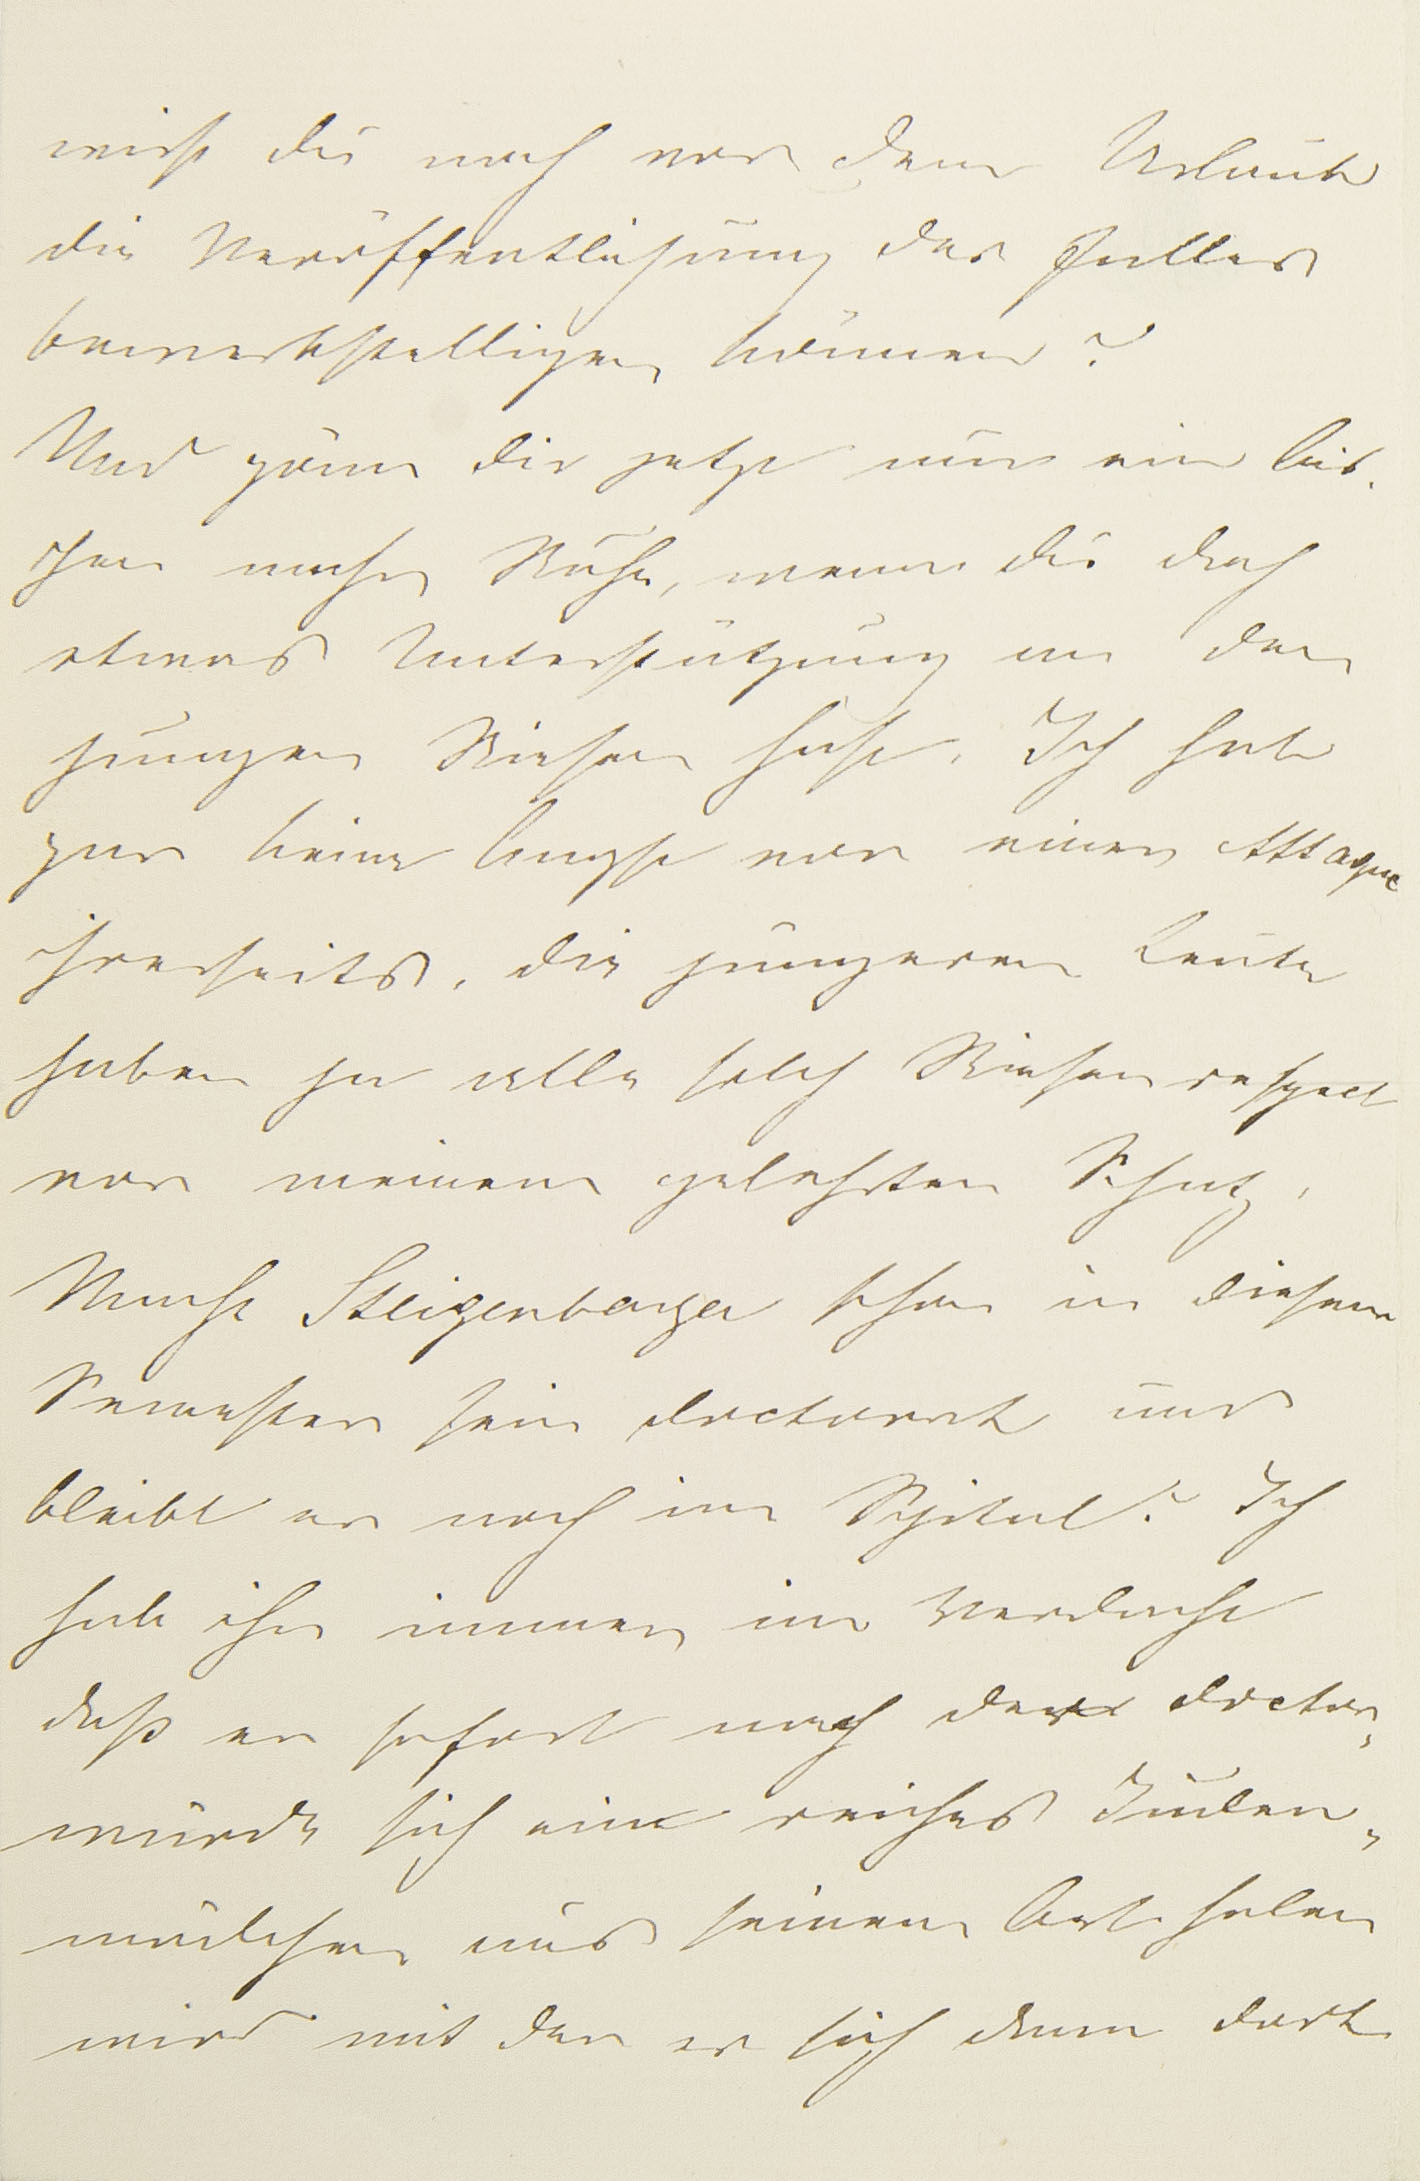 wirst du noch vor dem Urlaub
die Veröffentlichung des Falles
bewerkstelligen können?
Und gönn dir jetzt nur ein bis-
chen mehr Ruhe, wenn du doch
etwas Unterstützung an den
jungen Riesen hast. Ich hab
gar keine Angst vor einer Attaque
ihrerseits, die jüngeren Leute
haben ja alle solch Riesenrespect
vor meinem gelehrten Schatz.
Macht Steigenberger schon in diesem
Semester sein Doctorat und
bleibt er noch im Spital? Ich
hab ihn immer im Verdacht
daß er sofort nach der Doctor-
würde sich ein reiches Juden-
mädchen aus seinem Ort holen
wird mit der er sich dann dort